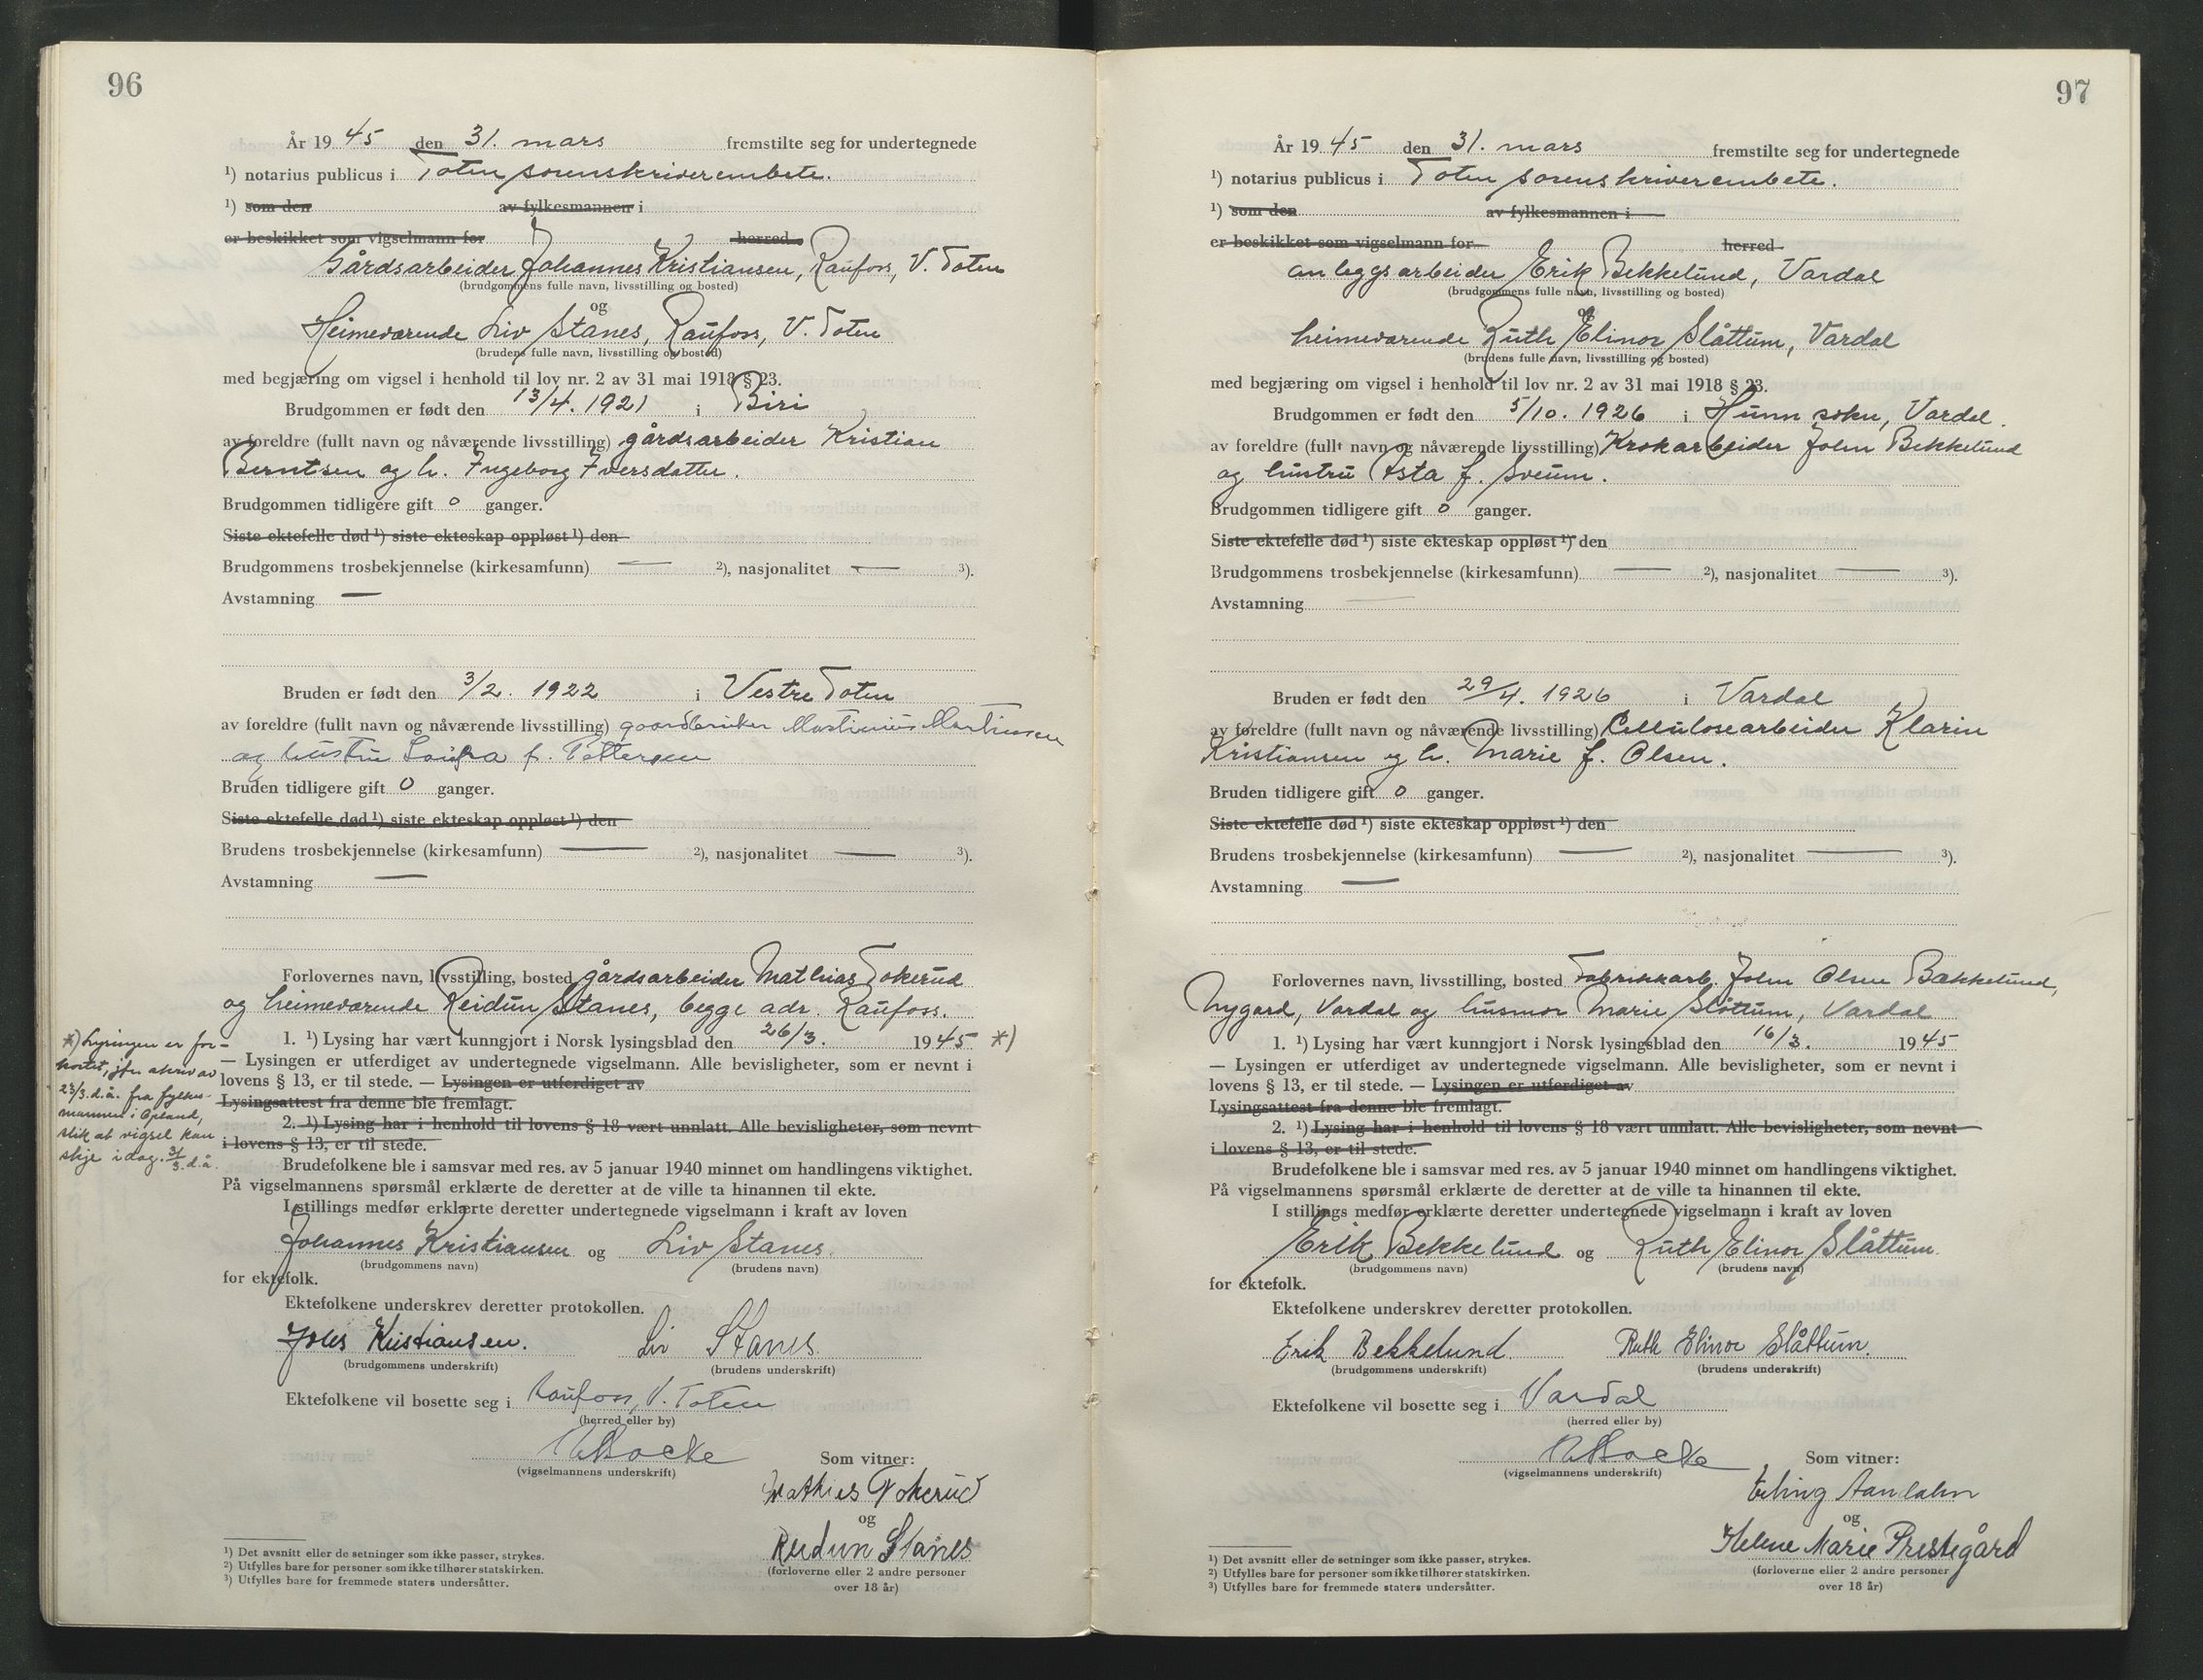 96
År 19 45 den 31. mars fremstilte seg for undertegnede
¹) notarius publicus i Toten sorenskriverembete.
¹) som den av fylkesmannen i
er beskikket som vigselmann for herred
Gårdsarbeider Johannes Kristiansen, Raufoss, V. Toten
(brudgommens fulle navn, livsstilling og bosted)
og
Heimeværende Liv Stanes, Raufoss, V. Toten
(brudens fulle navn, livsstilling og bosted)
med begjæring om vigsel i henhold til lov nr. 2 av 31 mai 1918 § 23.
Brudgommen er født den 13/4. 1921 i Biri
av foreldre (fullt navn og nåværende livsstilling) gårdsarbeider Kristian
Berntsen og h. Ingeborg Iversdatter.
Brudgommen tidligere gift 0 ganger.
Siste ektefelle død ¹) siste ekteskap oppløst ¹) den
Brudgommens trosbekjennelse (kirkesamfunn) — ²), nasjonalitet — ³).
Avstamning —
Bruden er født den 3/2. 1922 i Vestre Toten
av foreldre (fullt navn og nåværende livsstilling) gaardbruker Martinius Martinsen
og hustru f. Pettersen
Bruden tidligere gift 0 ganger.
Siste ektefelle død ¹) siste ekteskap oppløst ¹) den
Brudens trosbekjennelse (kirkesamfunn) — ²), nasjonalitet — ³).
Avstamning —
Forlovernes navn, livsstilling, bosted gårdsarbeider Mathias Tokerud
og heimeværende Reidun Stanes, begge adr. Raufoss.
1. ¹) Lysing har vært kunngjort i Norsk lysingsblad den 26/3. 19 45 *)
— Lysingen er utferdiget av undertegnede vigselmann. Alle bevisligheter, som er nevnt i
lovens § 13, er til stede. — Lysingen er utferdiget av
Lysingsattest fra denne ble fremlagt.
2. ¹) Lysing har i henhold til lovens § 18 vært unnlatt. Alle bevisligheter, som nevnt
i lovens § 13, er til stede.
*) Lysingen er for-
kortet, jfr. skriv av
23/3. d.å. fra fylkes-
mannen i Opland,
slik at vigsel kan
skje i dag. 31/3. d.å.
Brudefolkene ble i samsvar med res. av 5 januar 1940 minnet om handlingens viktighet.
På vigselmannens spørsmål erklærte de deretter at de ville ta hinannen til ekte.
I stillings medfør erklærte deretter undertegnede vigselmann i kraft av loven
Johannes Kristiansen og Liv Stanes.
(brudgommens navn) (brudens navn)
for ektefolk.
Ektefolkene underskrev deretter protokollen.
Johs Kristiansen. Liv Stanes
(brudgommens underskrift) (brudens underskrift)
Ektefolkene vil bosette seg i Raufoss, V. Toten
(herred eller by)
(vigselmannens underskrift) Som vitner:
Mathies Tokerud
og
Reidun Stanes
(forloverne eller 2 andre personer
over 18 år)
¹) Det avsnitt eller de setninger som ikke passer, strykes.
²) Utfylles bare for personer som ikke tilhører statskirken.
³) Utfylles bare for fremmede staters undersåtter.
97
År 19 45 den 31. mars fremstilte seg for undertegnede
¹) notarius publicus i Toten sorenskriverembete.
¹) som den av fylkesmannen i
er beskikket som vigselmann for herred
anleggsarbeider Erik Bekkelund, Vardal
(brudgommens fulle navn, livsstilling og bosted)
og
heimeværende Ruth Elinor Slåttum, Vardal
(brudens fulle navn, livsstilling og bosted)
med begjæring om vigsel i henhold til lov nr. 2 av 31 mai 1918 § 23.
Brudgommen er født den 5/10. 1926 i Hunn sokn, Vardal.
av foreldre (fullt navn og nåværende livsstilling) Krokarbeider John Bekkelund
og hustru Asta f. Sveum.
Brudgommen tidligere gift 0 ganger.
Siste ektefelle død ¹) siste ekteskap oppløst ¹) den
Brudgommens trosbekjennelse (kirkesamfunn) — ²), nasjonalitet — ³).
Avstamning —
Bruden er født den 29/4. 1926 i Vardal
av foreldre (fullt navn og nåværende livsstilling) Cellulosearbeider Klarin
Kristiansen og h. Marie f. Olsen.
Bruden tidligere gift 0 ganger.
Siste ektefelle død ¹) siste ekteskap oppløst ¹) den
Brudens trosbekjennelse (kirkesamfunn) — ²), nasjonalitet — ³).
Avstamning —
Forlovernes navn, livsstilling, bosted Fabrikkarb. John Olsen Bækkelund,
Nygard, Vardal og husmor Marie Slåttum, Vardal
1. ¹) Lysing har vært kunngjort i Norsk lysingsblad den 16/3. 19 45
— Lysingen er utferdiget av undertegnede vigselmann. Alle bevisligheter, som er nevnt i
lovens § 13, er til stede. — Lysingen er utferdiget av
Lysingsattest fra denne ble fremlagt.
2. ¹) Lysing har i henhold til lovens § 18 vært unnlatt. Alle bevisligheter, som nevnt
i lovens § 13, er til stede.
Brudefolkene ble i samsvar med res. av 5 januar 1940 minnet om handlingens viktighet.
På vigselmannens spørsmål erklærte de deretter at de ville ta hinannen til ekte.
I stillings medfør erklærte deretter undertegnede vigselmann i kraft av loven
Erik Bekkelund og Ruth Elinor Slåttum.
(brudgommens navn) (brudens navn)
for ektefolk.
Ektefolkene underskrev deretter protokollen.
Erik Bekkelund Ruth Elinor Slåttum.
(brudgommens underskrift) (brudens underskrift)
Ektefolkene vil bosette seg i Vardal
(herred eller by)
(vigselmannens underskrift) Som vitner:
Erling
og
Helene Marie Prestegård
(forloverne eller 2 andre personer
over 18 år)
¹) Det avsnitt eller de setninger som ikke passer, strykes.
²) Utfylles bare for personer som ikke tilhører statskirken.
³) Utfylles bare for fremmede staters undersåtter.